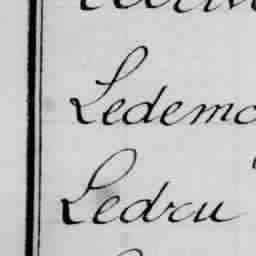 Ledemo
Ledru